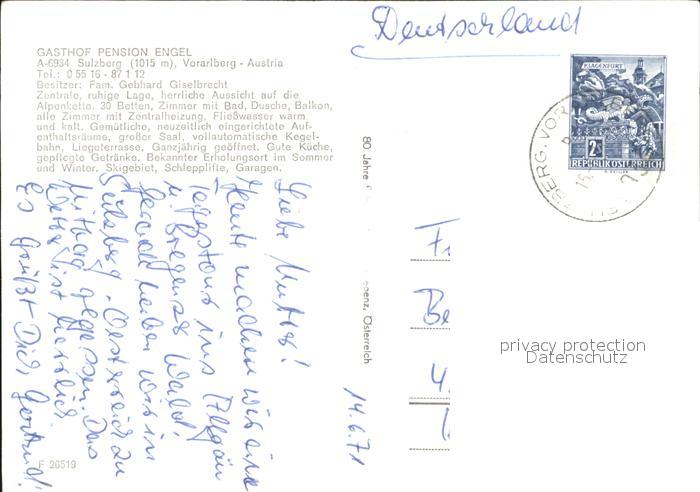 Deutschland
GASTHOF PENSION ENGEL
A-6934 Sulzberg (1015 m), Vorarlberg - Austria
Tel.: 0 55 16 - 87 1 12
Besitzer: Fam. Gebhard Giselbrecht
Zentrale, ruhige Lage, herrliche Aussicht auf die
Alpenkette. 30 Betten, Zimmer mit Bad, Dusche, Balkon,
alle Zimmer mit Zentralheizung. Fließwasser warm
und kalt. Gemütliche, neuzeitlich eingerichtete Auf-
enthaltsräume, großer Saal, vollautomatische Kegel-
bahn, Liegeterrasse. Ganzjährig geöffnet. Gute Küche,
gepflegte Getränke. Bekannter Erholungsort im Sommer
und Winter. Skigebiet, Schlepplifte, Garagen.
Liebe Mutter!
Heute machen wir eine
Tagestour ins Allgäu
u. Bregenzer Wald!
Gerade haben wir in
Sulzberg, Oesterreich zu
Mittag gegessen. Das
Wetter ist herrlich
Es grüßt Dich, Gertrud!
F 26519
80 Jahre
Österreich
14.6.71
KLAGENFURT
2S
REPUBLIK ÖSTERREICH
BERG, VOR
Fr
Be
4
privacy protection
Datenschutz